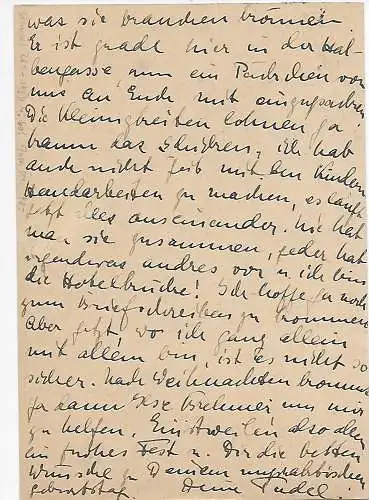 was sie brauchen können.
Er ist grade hier in der Hal-
bengasse, um ein Päckchen von
uns an Ende mit einzupacken.
Die Kleinigkeiten lohnen ja
kaum das Schicken, ich hab
auch nicht Zeit mit den Kindern
Handarbeiten zu machen, es läuft
jetzt alles auseinander. Nie hat
man sie zusammen, jeder hat
irgendwas andres vor u. ich bin
die Hotelbrücke! Ich hoffe ja noch
zum Briefschreiben zu kommen
Aber jetzt, wo ich ganz allein
mit allem bin, ist es nicht so
sicher. Nach Weihnachten kommt
ja dann Ilse Brehmer um mir
zu helfen. Einstweilen also allen
ein frohes Fest u. Dir die besten
Wünsche zu Deinem
geburtstag. Deine Trudel.